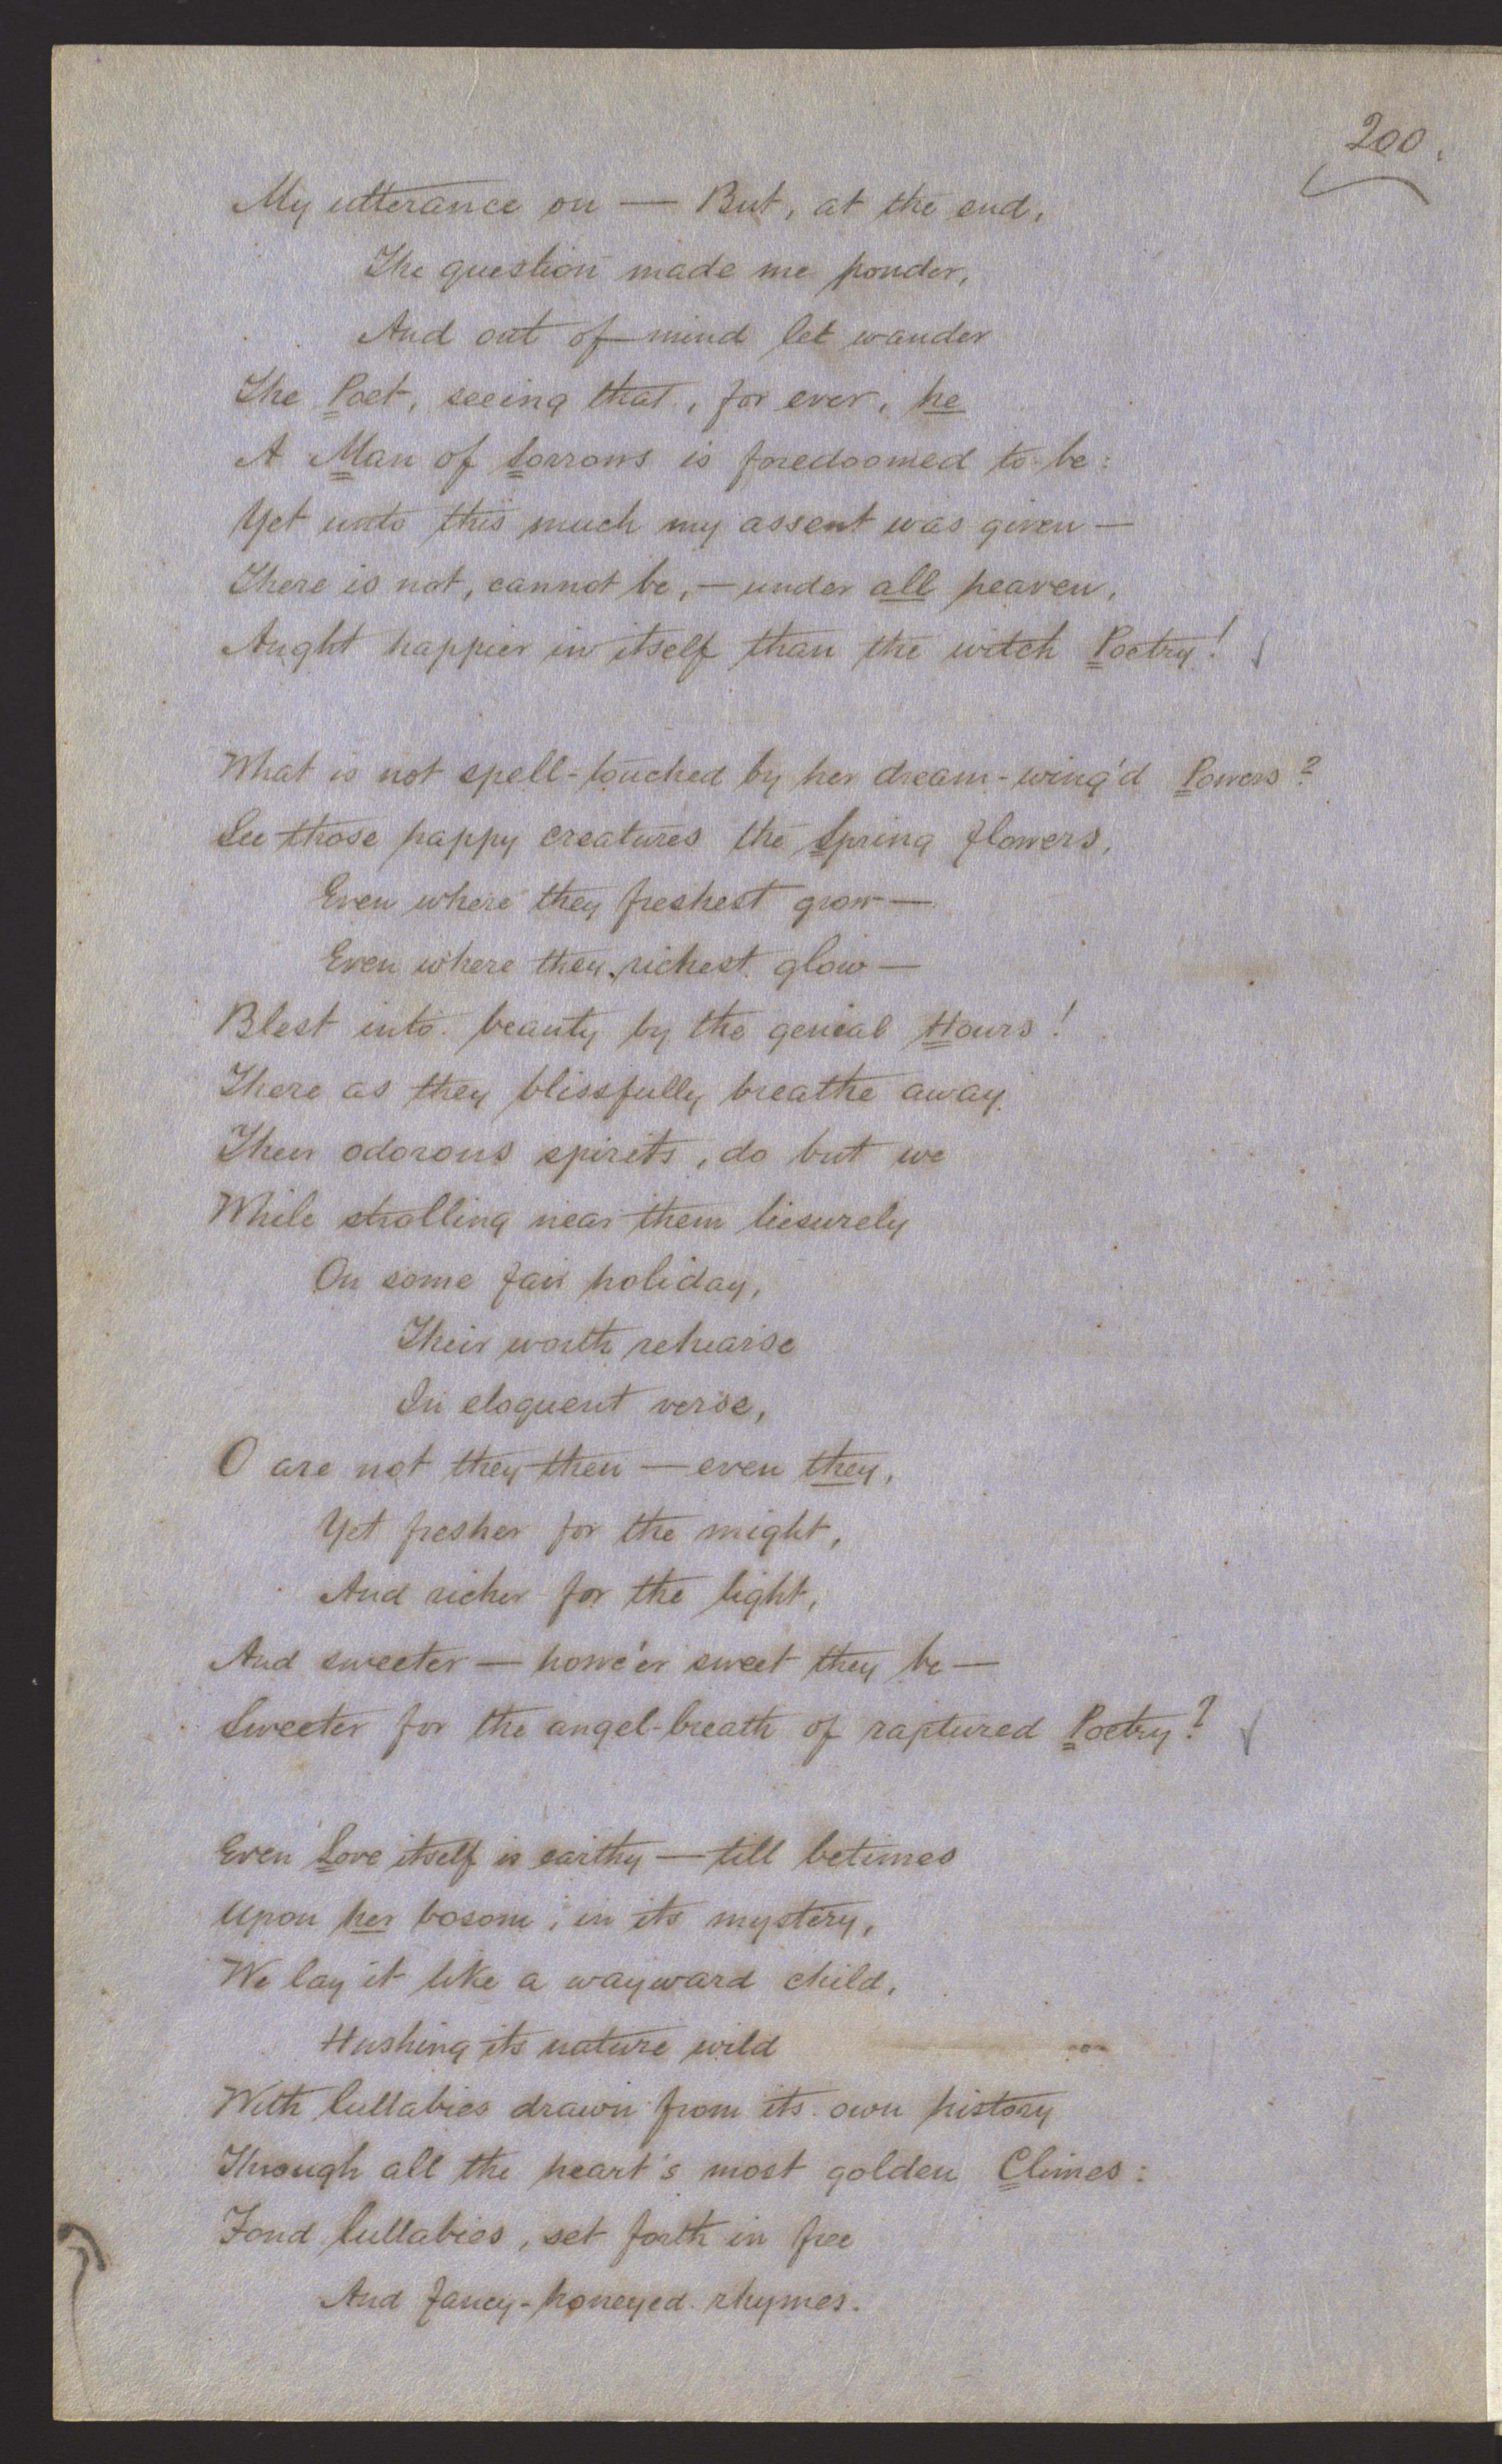 200.
My utterance on — But, at the end,
The question made me ponder,
And out of mind let wander
The Poet, seeing that, for ever, he
A Man of Sorrows is foredoomed to be:
Yet unto this much my assent was given —
There is not, cannot be, — under all heaven,
Aught happier in itself than the witch Poetry!
What is not spell-touched by her dream-wing'd Powers?
See those happy creatures the Spring flowers,
Even where they freshest grow —
Even where they richest glow —
Blest into beauty by the genial Hours!
There as they blissfully breathe away
Their odorous spirits, do but we
While strolling near them liesurely
On some fair holiday,
Their worth rehearse
In eloquent verse,
O are not they then — even they,
Yet fresher for the might,
And richer for the light,
And sweeter — howe'er sweet they be —
Sweeter for the angel-breath of raptured Poetry?
Even Love itself is earthy — till betimes
Upon her bosom, in its mystery,
We lay it like a wayward child,
Hushing its nature wild
With lullabies drawn from its own history
Through all the heart's most golden Climes:
Fond lullabies, set forth in free
And fancy-honeyed rhymes.